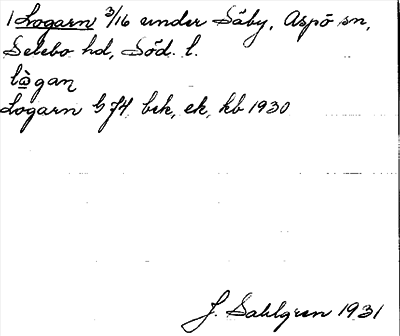 1 Logarn 3/16 under Säby, Aspö sn,
Selebo hd, Söd. l.
lò̲gan
Logarn G 74 bek, ek, kb 1930
J. Sahlgren 1931